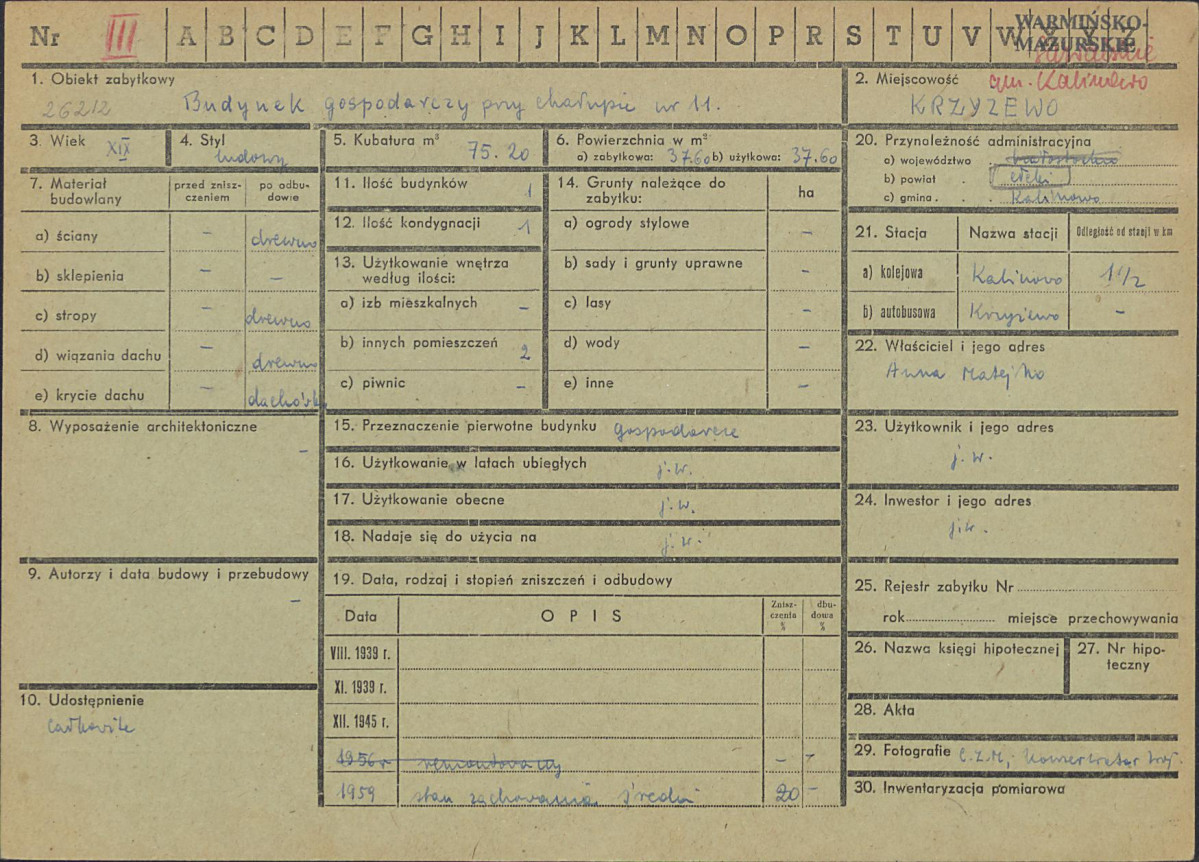 Nr III A B C D E F G H I J K L M N O P R S T U V W X Y Z WARMIŃSKO-MAZURSKIE
1. Obiekt zabytkowy
26212 Budynek gospodarczy przy chałupie nr 11.
2. Miejscowość gm. Kalinowo
KRZYŻEWO
3. Wiek XIX
4. Styl ludowy
5. Kubatura m³ 75.20
6. Powierzchnia w m²
a) zabytkowa: 37.60 b) użytkowa: 37.60
20. Przynależność administracyjna
a) województwo białostockie
b) powiat ełcki
c) gmina Kalinowo
7. Materiał budowlany
przed zniszczeniem
po odbudowie
a) ściany – drewno
b) sklepienia – –
c) stropy – drewno
d) wiązania dachu – drewno
e) krycie dachu – dachówk
11. Ilość budynków 1
12. Ilość kondygnacji 1
13. Użytkowanie wnętrza według ilości:
a) izb mieszkalnych –
b) innych pomieszczeń 2
c) piwnic –
14. Grunty należące do zabytku: ha
a) ogrody stylowe –
b) sady i grunty uprawne –
c) lasy –
d) wody –
e) inne –
21. Stacja Nazwa stacji Odległość od stacji w km
a) kolejowa Kalinowo 1 1/2
b) autobusowa Krzyżewo –
22. Właściciel i jego adres
Anna Matejko
8. Wyposażenie architektoniczne
–
15. Przeznaczenie pierwotne budynku gospodarcze
16. Użytkowanie w latach ubiegłych j.w.
17. Użytkowanie obecne j.w.
18. Nadaje się do użycia na j.w.
23. Użytkownik i jego adres
j.w.
24. Inwestor i jego adres
j.w.
9. Autorzy i data budowy i przebudowy
–
19. Data, rodzaj i stopień zniszczeń i odbudowy
Data OPIS Zniszczenia % dbudowa %
VIII. 1939 r.
XI. 1939 r.
XII. 1945 r.
1956 r remontowany – –
1959 stan zachowania średni 20 –
25. Rejestr zabytku Nr
rok miejsce przechowywania
26. Nazwa księgi hipotecznej
27. Nr hipoteczny
10. Udostępnienie
całkowite
28. Akta
29. Fotografie C.Z.M., Konserwator Woj.
30. Inwentaryzacja pomiarowa